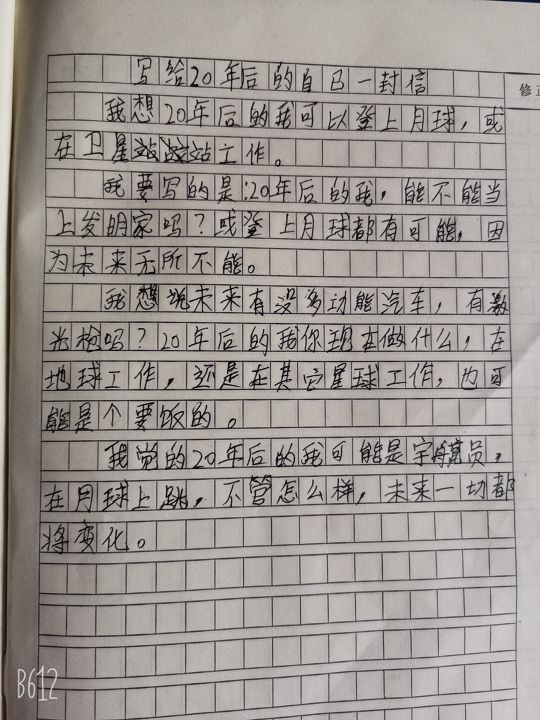 写给20年后的自已一封信
修正
我想20年后的我可以登上月球，或
在卫星站战站工作。
我要写的是:20年后的我，能不能当
上发明家吗？或登上月球都有可能，因
为未来无所不能。
我想说未来有没多功能汽车，有激
光枪吗？20年后的我你现在做什么，在
地球工作，还是在其它星球工作，也可
能是个要饭的。
我觉的20年后的我可能是宇航员，
在月球上跳，不管怎么样，未来一切都
将变化。
B612